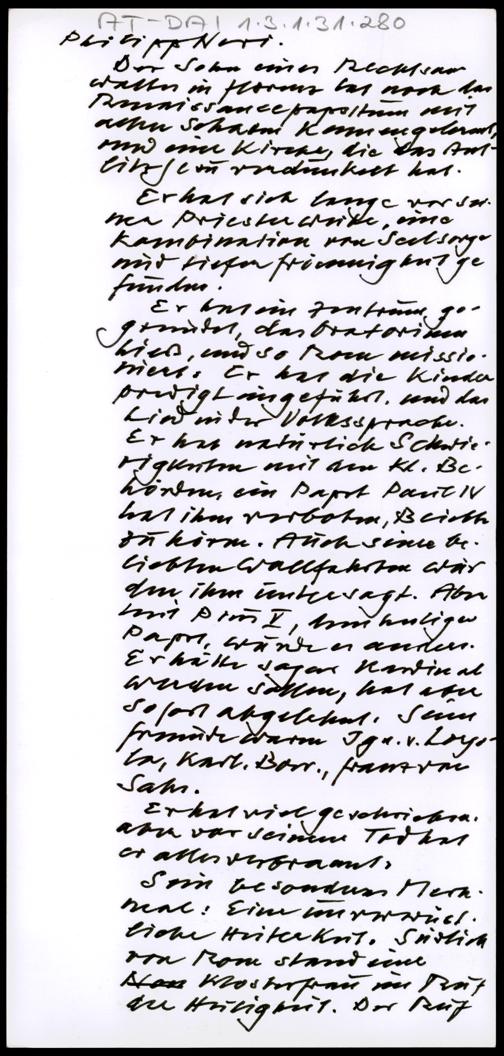 AT-DAI 1.3.1.31.280
Philipp Neri.
Der Sohn eines Rechtsan
waltes in Florenz hat noch das
Renaissancepapsttum mit
allen Schatten kennengelernt
und eine Kirche, die das Ant-
litz Jesu verdunkelt hat.
Er hat sich lange vor sei-
ner Priesterweihe, eine
Kombination von Seelsorge
und tiefer Frömmigkeit ge
funden.
Er hat ein Zentrum ge-
gründet, das Oratorium
hieß, und so Rom missio-
niert. Er hat die Kinder
predigt eingeführt. und das
Lied in der Volkssprache.
Er hat natürlich Schwie-
rigkeiten mit den kl. Be-
hörden, ein Papst Paul IV
hat ihm verboten, Beichte
zu hören. Auch seine be-
liebten Wallfahrten wur
den ihm untersagt. Aber
mit Pius V, dem heiligen
Papst, wurde es anders.
Er hätte sogar Kardinal
werden sollen, hat aber
sofort abgelehnt. Seine
Freunde waren Ign. v. Loyo-
la, Karl. Borr., Franz von
Sales.
Er hat viel geschrieben.
aber vor seinem Tod hat
er alles verbrannt.
Sein besonderes Merk-
mal: Eine unverwüst-
liche Heiterkeit. Südlich
von Rom stand eine
Klosterfrau im Ruf
der Heiligkeit. Der Ruf